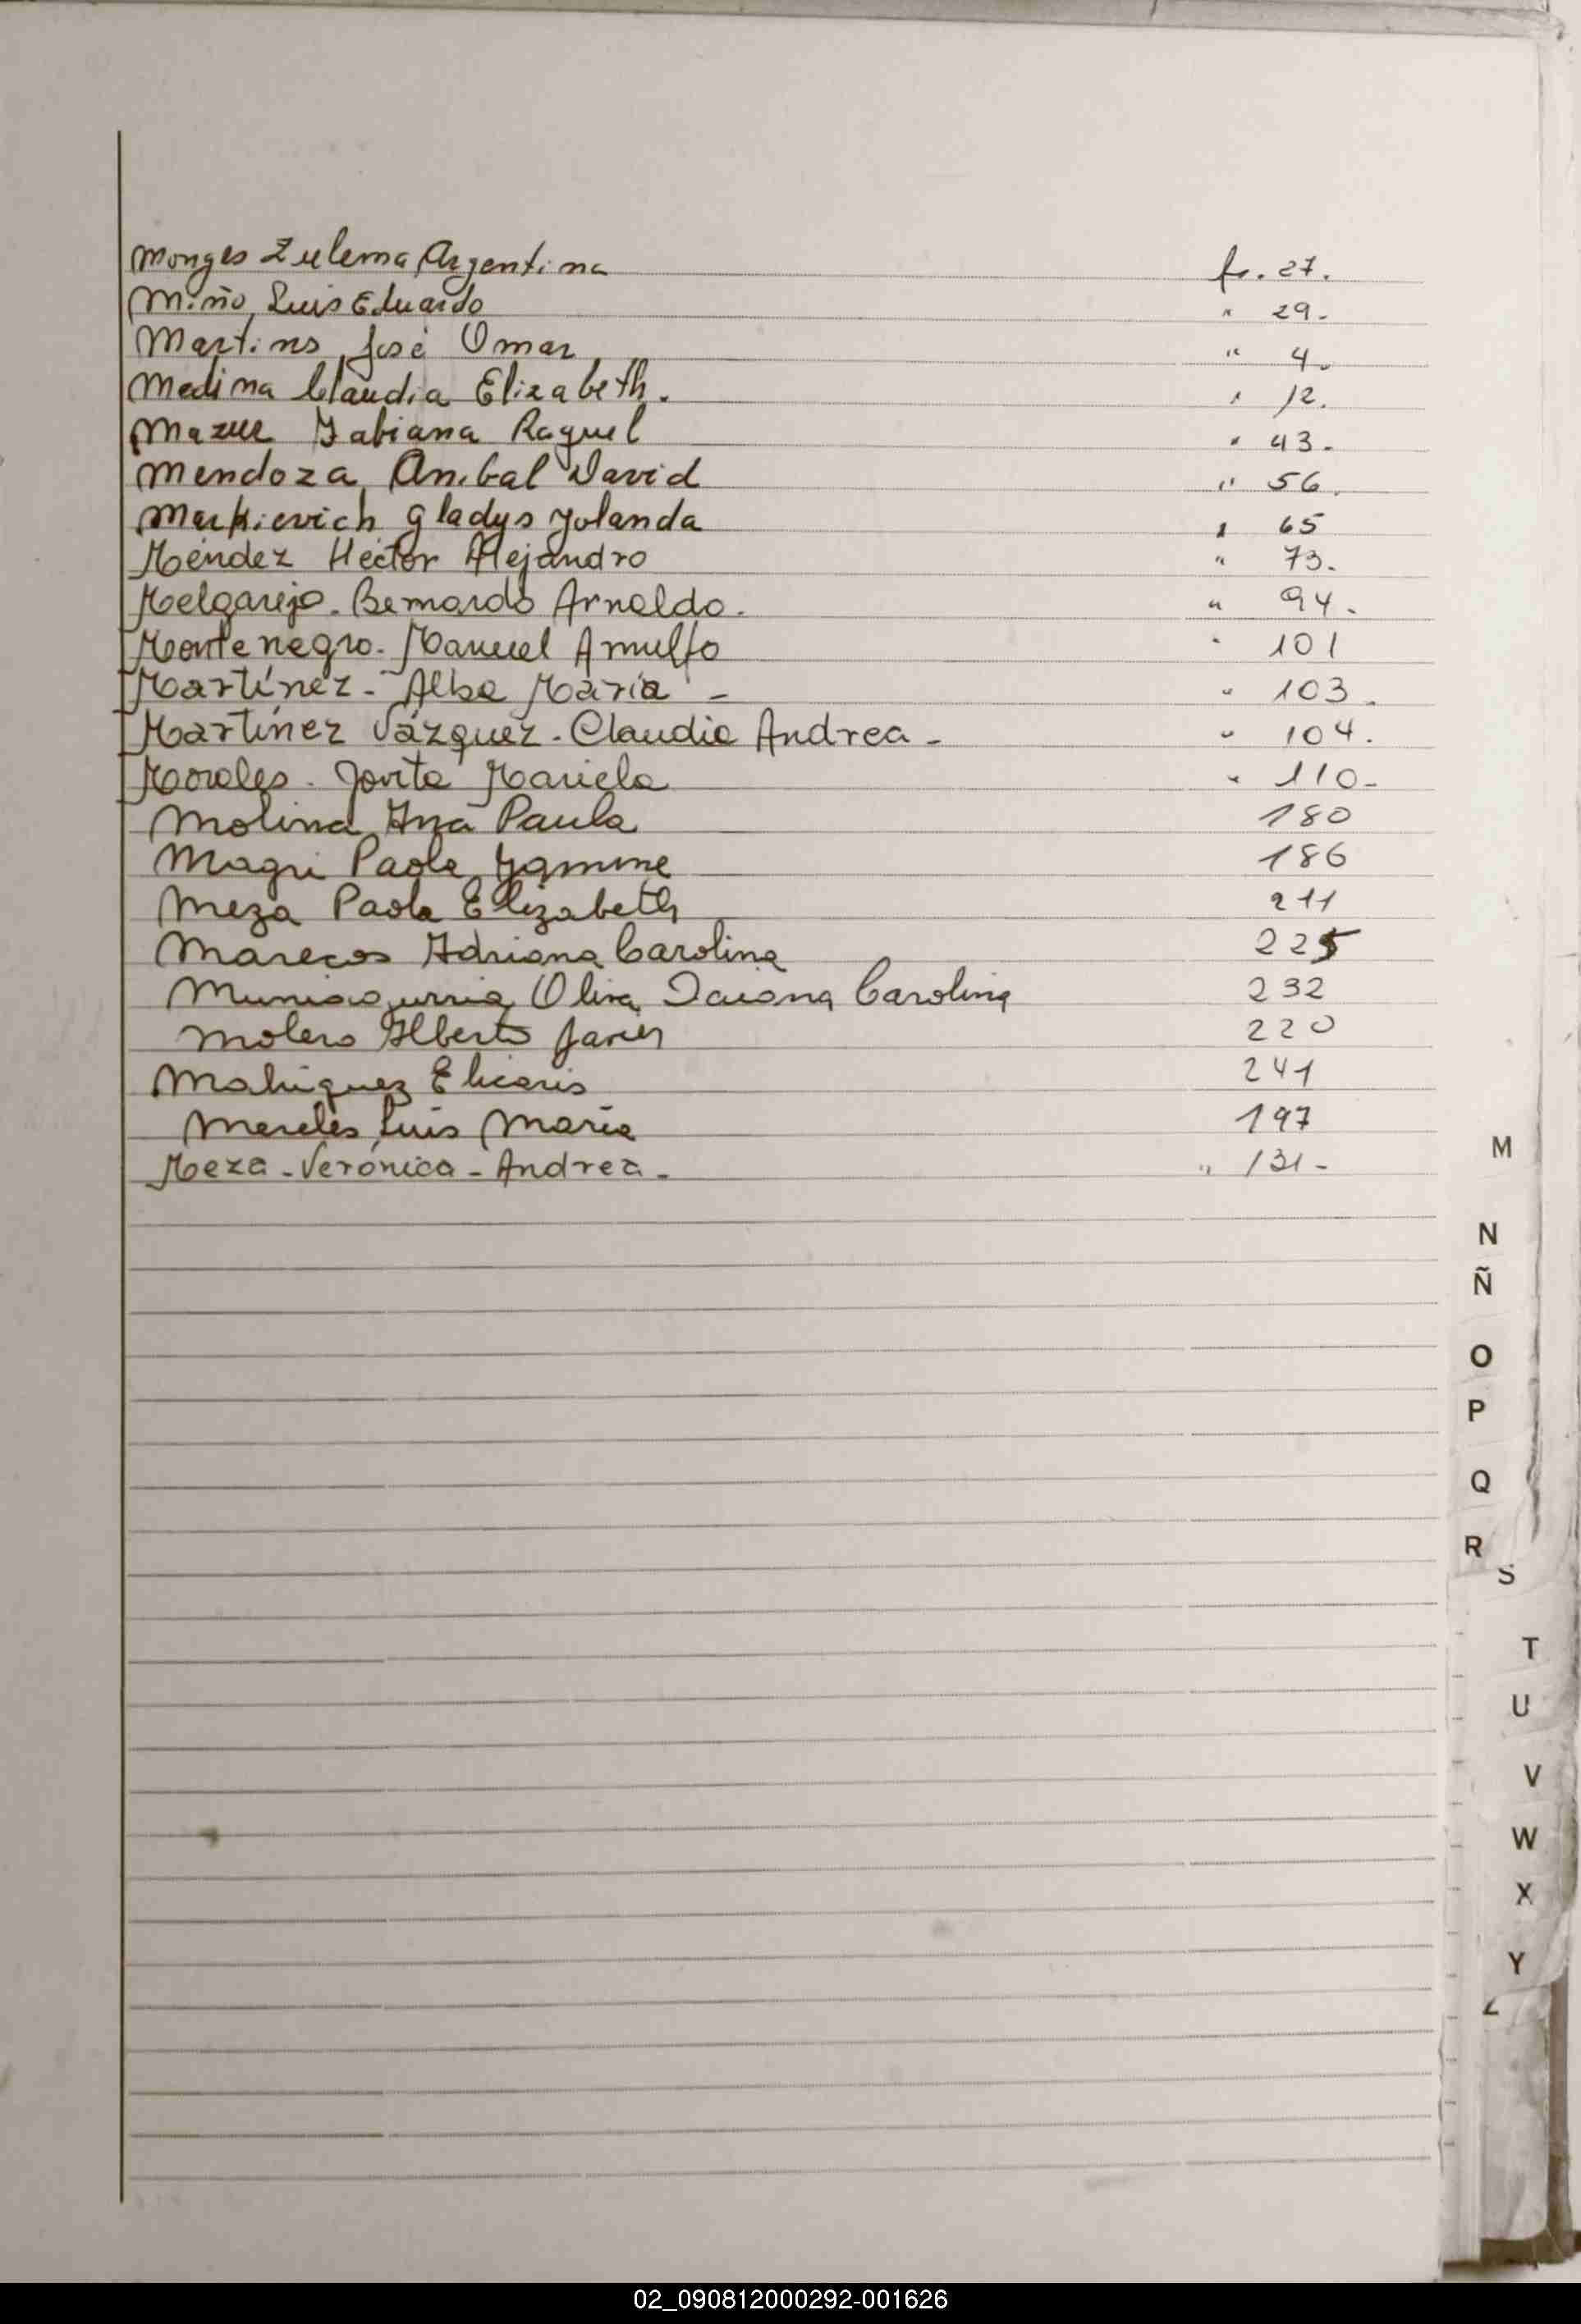 Monges Zulema Argentina fs. 27.
Miño, Luis Eduardo " 29-
Martins José Omar " 4-
Medina Claudia Elizabeth. " 12.
Mazur Fabiana Raquel " 43-
Mendoza Anibal David " 56.
Markievich Gladys Yolanda " 65
Méndez Héctor Alejandro " 73.
Melgarejo - Bernardo Arnaldo. " 94.
Montenegro - Manuel Arnulfo " 101
Martínez - Alba María - " 103.
Martínez Vázquez - Claudia Andrea - " 104.
Morales - Jovita Mariela " 110-
Molina Ana Paula 180
Magri Paola 186
Meza Paola Elizabeth 211
Marecos Adriana Carolina 225
Muniagurria Oliva Daiana Carolina 232
Molero Alberto Javier 220
Mahiquez 241
Mereles Luis María 197
Meza - Verónica - Andrea - " 131-
M
N
Ñ
O
P
Q
R
S
T
U
V
W
X
Y
Z
02_090812000292-001626